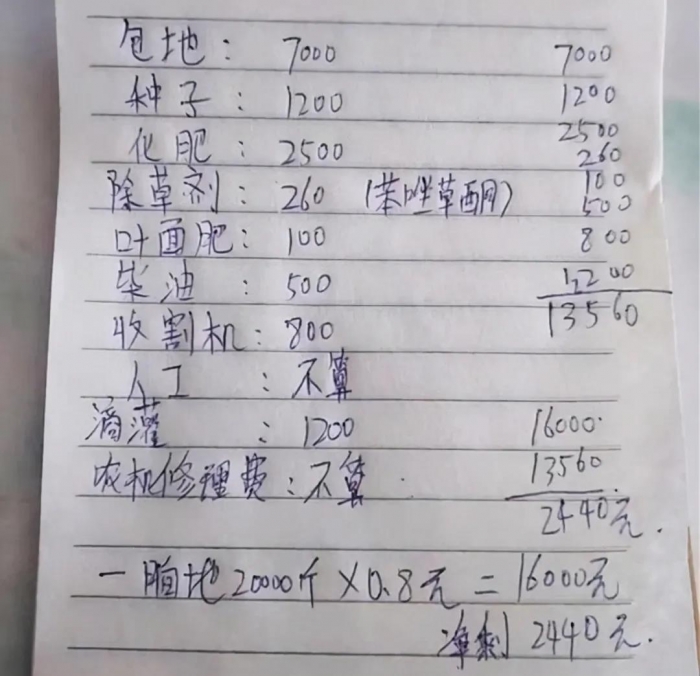 包地： 7000 7000
种子： 1200 1200
化肥： 2500 2500
260
除草剂： 260 （苯唑草酮） 100
500
叶面肥： 100 800
柴油： 500 1200
收割机： 800 13560
人工： 不算
滴灌： 1200 16000
农机修理费：不算 13560
2440元.
一晌地20000斤×0.8元=16000元
净剩 2440元.